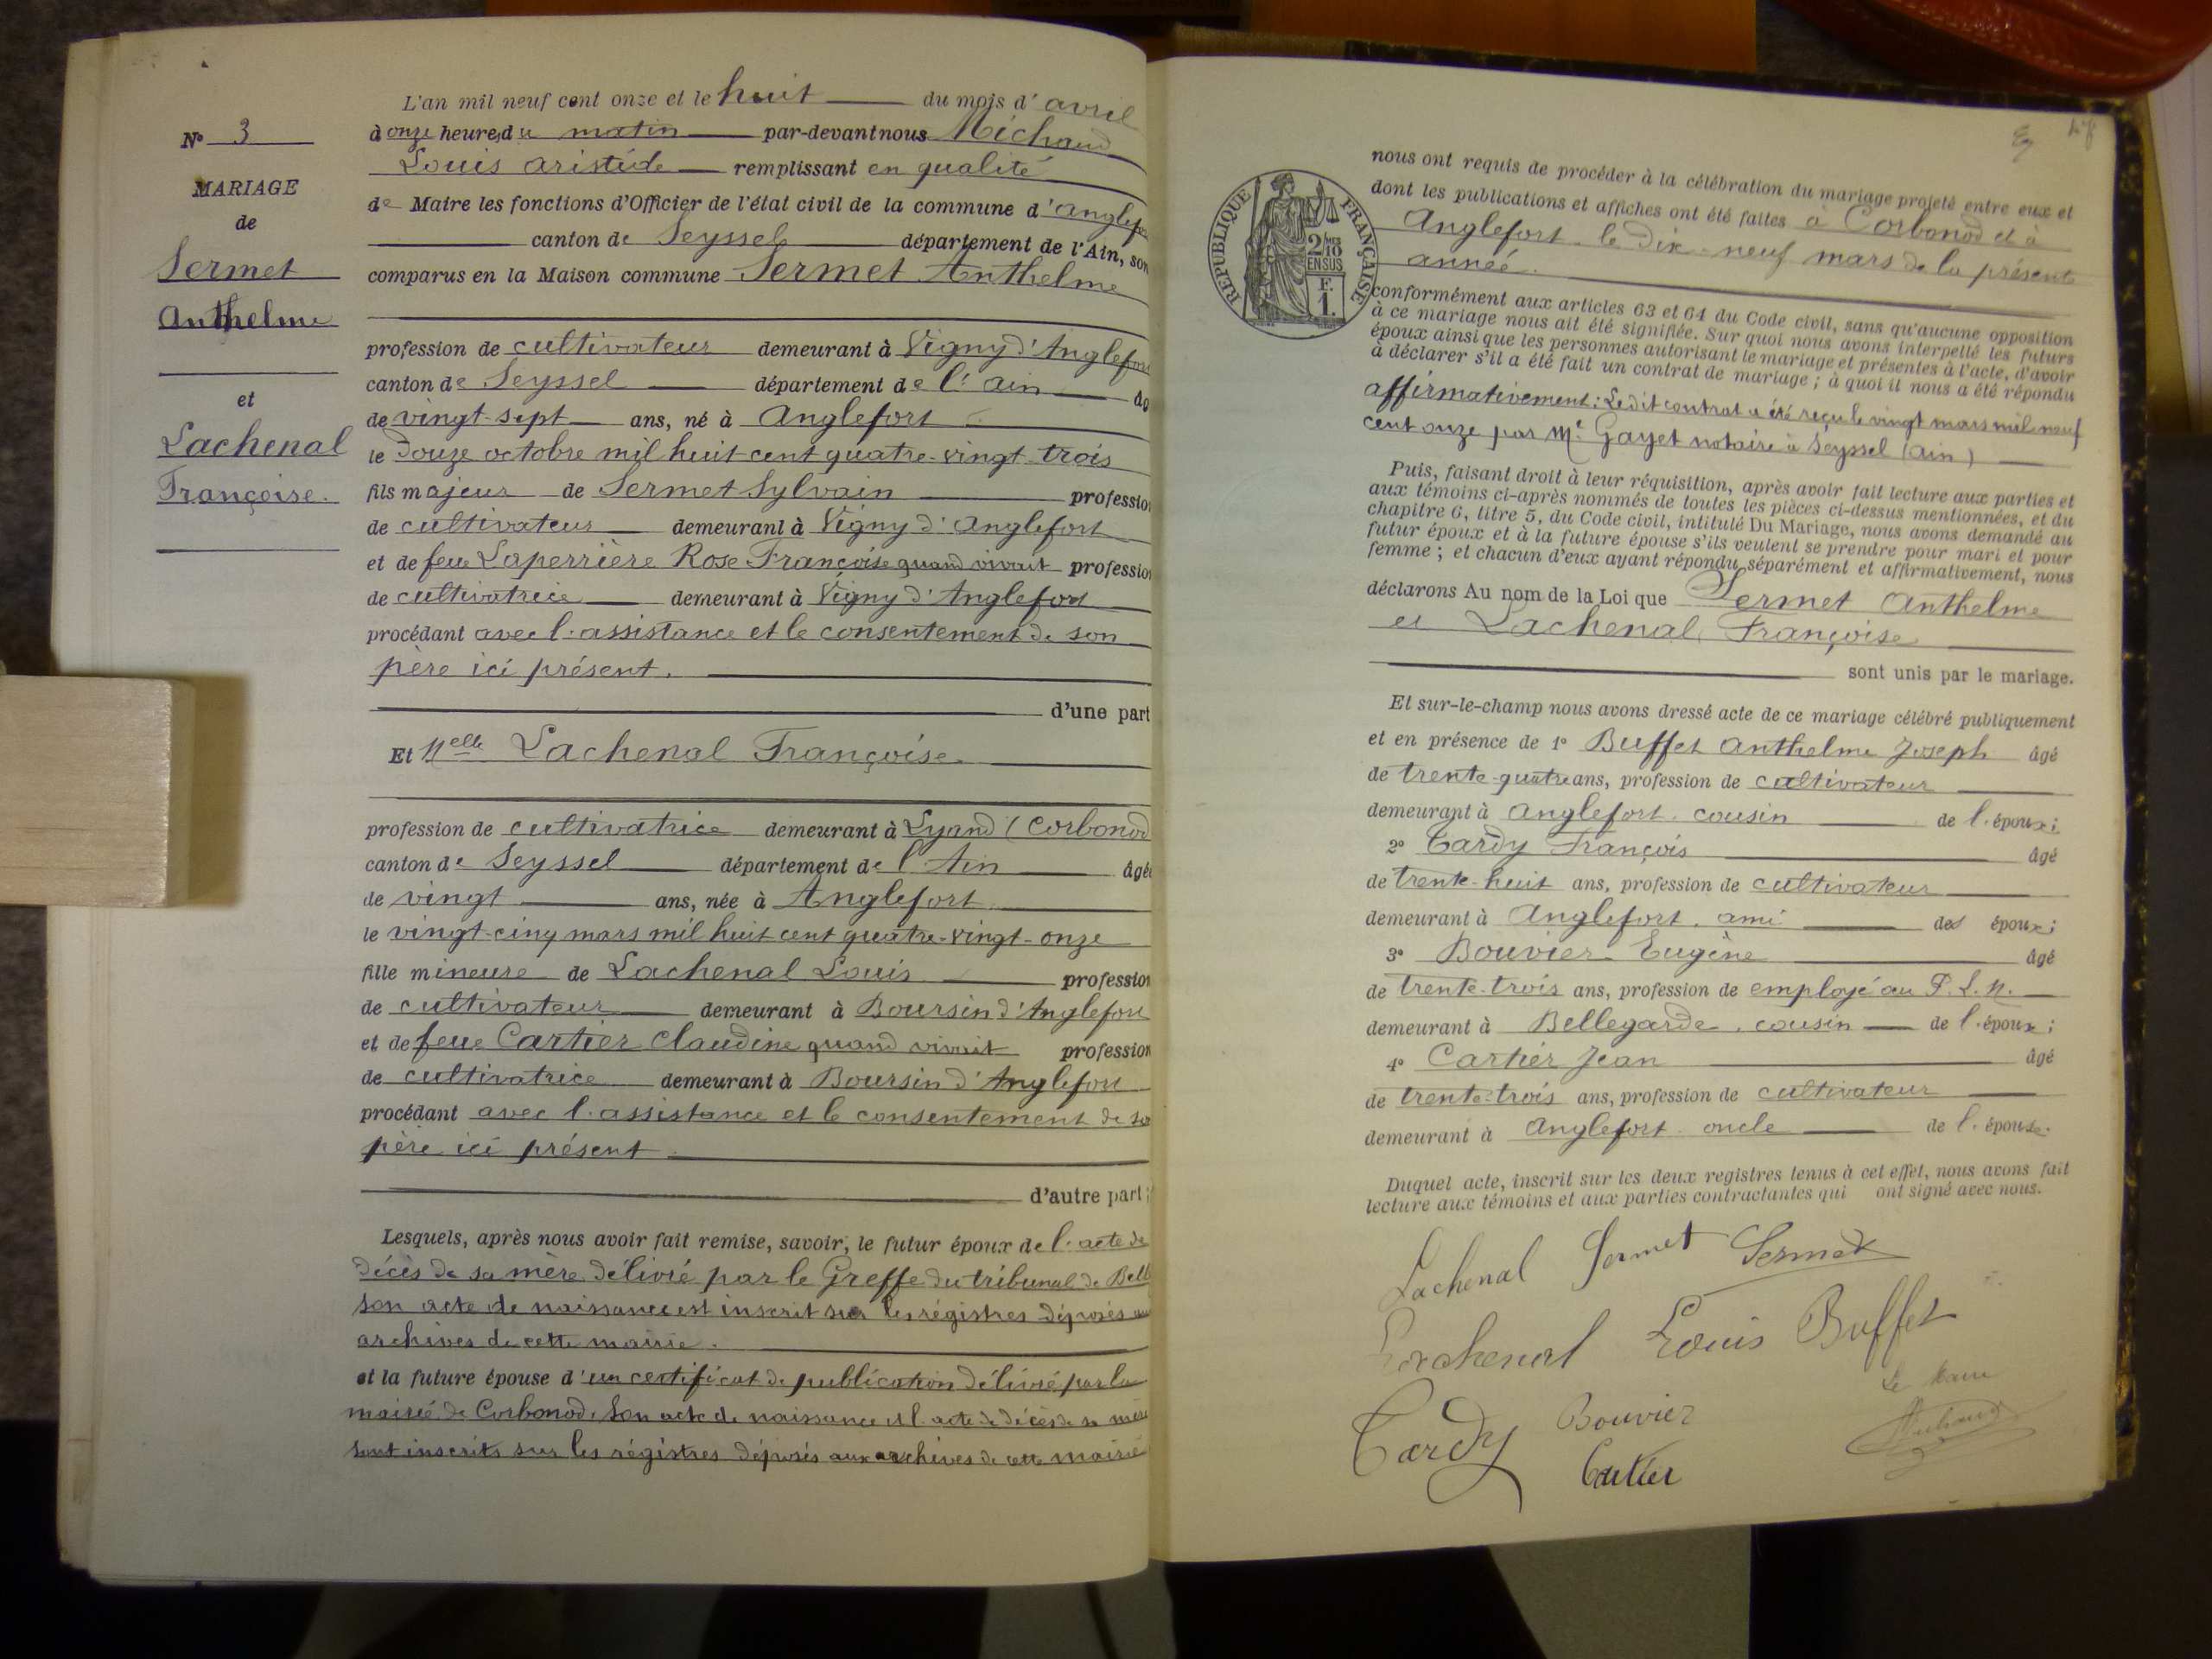 N° 3
MARIAGE
de
Sermet
Anthelme
et
Lachenal
Françoise.
L'an mil neuf cent onze et le huit du mois d'avril
à onze heures du matin par-devant nous Michaud
Louis Aristide remplissant en qualité
de Maire les fonctions d'Officier de l'état civil de la commune d'Anglefo
canton de Seyssel département de l'Ain, son
comparus en la Maison commune Sermet Anthelme
profession de cultivateur demeurant à Vigny d'Anglefort
canton de Seyssel département de l'Ain âg
de vingt-sept ans, né à Anglefort
le douze octobre mil huit cent quatre-vingt-trois
fils majeur de Sermet Sylvain profession
de cultivateur demeurant à Vigny d'Anglefort
et de feue Laperrière Rose Françoise quand vivait profession
de cultivatrice demeurant à Vigny d'Anglefort
procédant avec l'assistance et le consentement de son
père ici présent.
d'une part
Et Melle Lachenal Françoise.
profession de cultivatrice demeurant à Lyand (Corbonod
canton de Seyssel département de l'Ain âgée
de vingt ans, née à Anglefort
le vingt-cinq mars mil huit cent quatre-vingt-onze
fille mineure de Lachenal Louis profession
de cultivateur demeurant à Boursin d'Anglefort
et de feue Cartier Claudine quand vivait profession
de cultivatrice demeurant à Boursin d'Anglefort
procédant avec l'assistance et le consentement de so
père ici présent
d'autre part ;
Lesquels, après nous avoir fait remise, savoir, le futur époux de l'acte de
décès de sa mère délivré par le Greffe du tribunal de Bell
son acte de naissance est inscrit sur les régistres déposés aux
archives de cette mairie.
et la future épouse d'un certificat de publication délivré par la
mairie de Corbonod. Son acte de naissance et l'acte de décès de sa mère
sont inscrits sur les régistres déposés aux archives de cette mairie
RÉPUBLIQUE FRANÇAISE
2/10
EN SUS
F.
1.
nous ont requis de procéder à la célébration du mariage projeté entre eux et
dont les publications et affiches ont été faites à Corbonod et à
Anglefort le dix-neuf mars de la présente
année.
conformément aux articles 63 et 64 du Code civil, sans qu'aucune opposition
à ce mariage nous ait été signifiée. Sur quoi nous avons interpellé les futurs
époux ainsi que les personnes autorisant le mariage et présentes à l'acte, d'avoir
à déclarer s'il a été fait un contrat de mariage ; à quoi il nous a été répondu
affirmativement : Ledit contrat a été reçu le vingt mars mil neuf
cent onze par Me Gayet notaire à Seyssel (Ain)
Puis, faisant droit à leur réquisition, après avoir fait lecture aux parties et
aux témoins ci-après nommés de toutes les pièces ci-dessus mentionnées, et du
chapitre 6, titre 5, du Code civil, intitulé Du Mariage, nous avons demandé au
futur époux et à la future épouse s'ils veulent se prendre pour mari et pour
femme ; et chacun d'eux ayant répondu séparément et affirmativement, nous
déclarons Au nom de la Loi que Sermet Anthelme
et Lachenal Françoise
sont unis par le mariage.
Et sur-le-champ nous avons dressé acte de ce mariage célébré publiquement
et en présence de 1° Buffet Anthelme Joseph âgé
de trente-quatre ans, profession de cultivateur
demeurant à Anglefort. cousin de l'époux ;
2° Tardy François âgé
de trente-huit ans, profession de cultivateur
demeurant à Anglefort. ami des époux ;
3° Bouvier Eugène âgé
de trente-trois ans, profession de employé au P.L.M.
demeurant à Bellegarde, cousin de l'époux ;
4° Cartier Jean âgé
de trente-trois ans, profession de cultivateur
demeurant à Anglefort. oncle de l'épouse.
Duquel acte, inscrit sur les deux registres tenus à cet effet, nous avons fait
lecture aux témoins et aux parties contractantes qui ont signé avec nous.
Lachenal Sermet Sermet
Lachenal Louis Buffet
Le Maire
Tardy Bouvier Michaud
Cartier